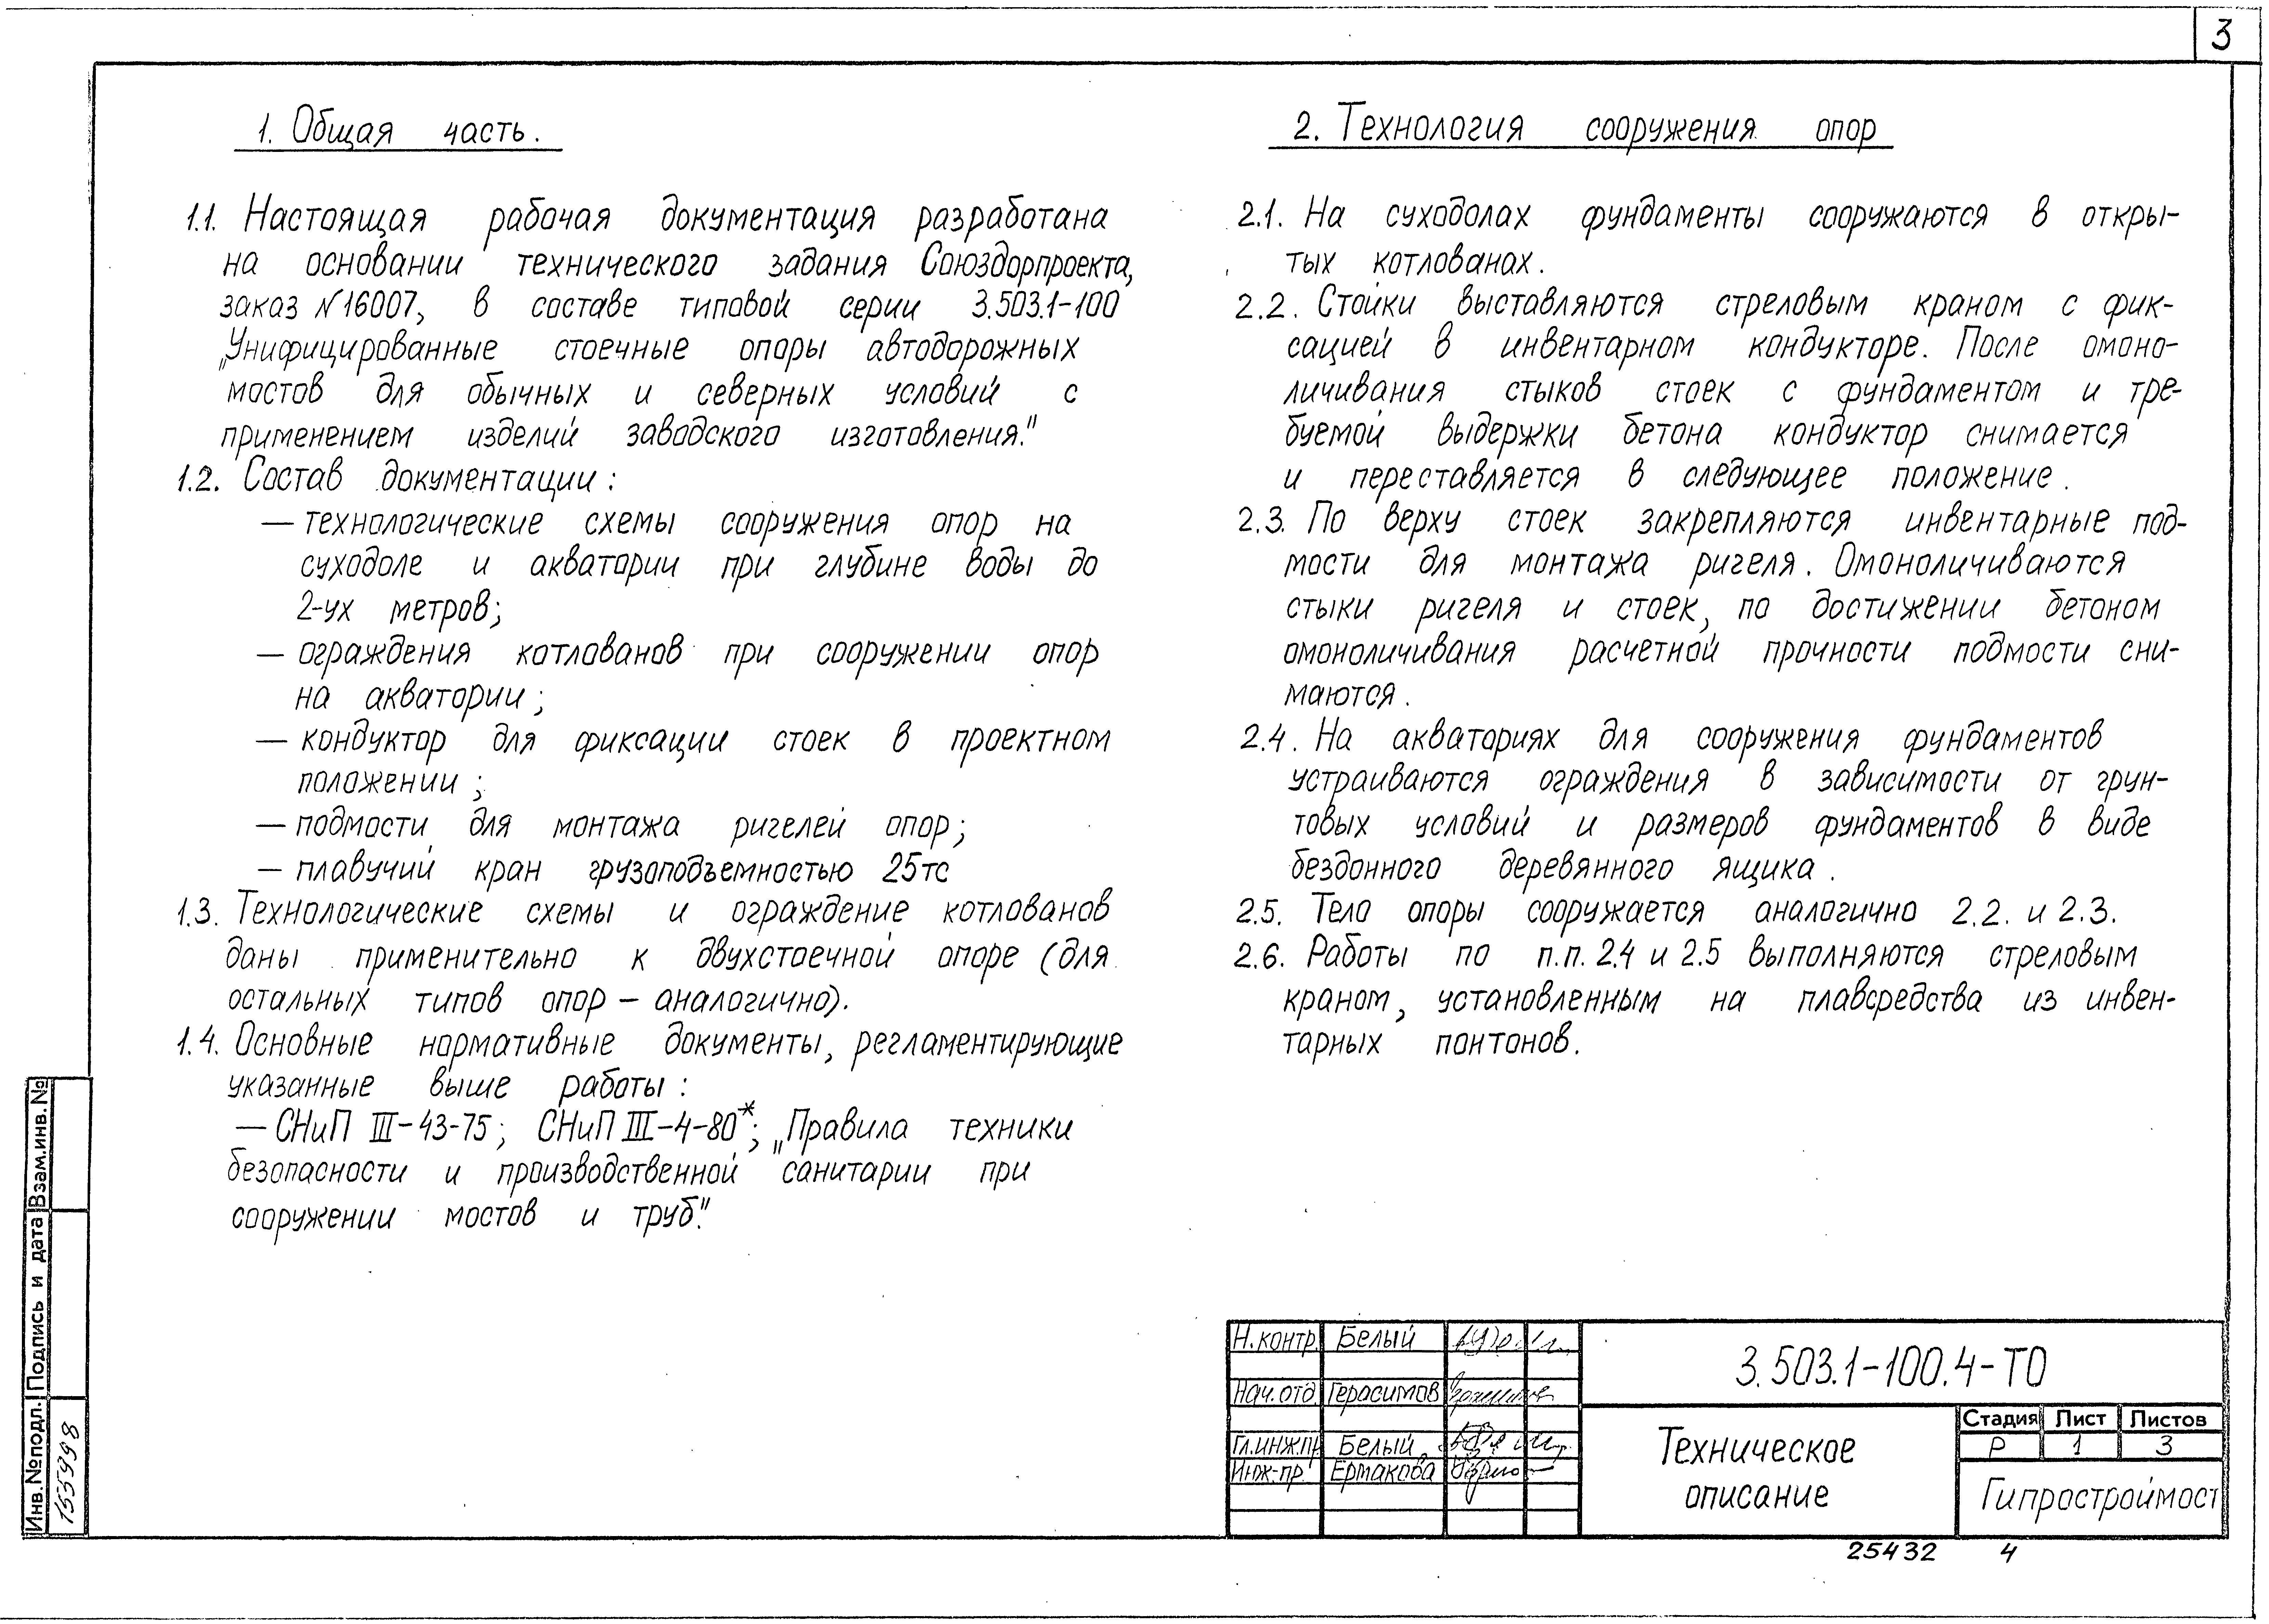 3
1. Общая часть.
1.1. Настоящая рабочая документация разработана
на основании технического задания Союздорпроекта,
заказ №16007, в составе типовой серии 3.503.1-100
„Унифицированные стоечные опоры автодорожных
мостов для обычных и северных условий с
применением изделий заводского изготовления."
1.2. Состав документации:
— технологические схемы сооружения опор на
суходоле и акватории при глубине воды до
2-ух метров;
— ограждения котлованов при сооружении опор
на акватории;
— кондуктор для фиксации стоек в проектном
положении;
— подмости для монтажа ригелей опор;
— плавучий кран грузоподъемностью 25тс
1.3. Технологические схемы и ограждение котлованов
даны применительно к двухстоечной опоре (для
остальных типов опор — аналогично).
1.4. Основные нормативные документы, регламентирующие
указанные выше работы:
— СНиП III-43-75; СНиП III-4-80*; „Правила техники
безопасности и производственной санитарии при
сооружении мостов и труб."
2. Технология сооружения опор
2.1. На суходолах фундаменты сооружаются в откры-
тых котлованах.
2.2. Стойки выставляются стреловым краном с фик-
сацией в инвентарном кондукторе. После омоно-
личивания стыков стоек с фундаментом и тре-
буемой выдержки бетона кондуктор снимается
и переставляется в следующее положение.
2.3. По верху стоек закрепляются инвентарные под-
мости для монтажа ригеля. Омоноличиваются
стыки ригеля и стоек, по достижении бетоном
омоноличивания расчетной прочности подмости сни-
маются.
2.4. На акваториях для сооружения фундаментов
устраиваются ограждения в зависимости от грун-
товых условий и размеров фундаментов в виде
бездонного деревянного ящика.
2.5. Тело опоры сооружается аналогично 2.2. и 2.3.
2.6. Работы по п.п. 2.4 и 2.5 выполняются стреловым
краном, установленным на плавсредства из инвен-
тарных понтонов.
Взам.инв.№
Подпись и дата
Инв.№подл.
155998
Н.контр. Белый
Нач.отд. Герасимов
Гл.инж.пр. Белый
Инж-пр. Ермакова
3.503.1-100.4-ТО
Техническое
описание
Стадия Лист Листов
Р 1 3
Гипростроймост
25432 4